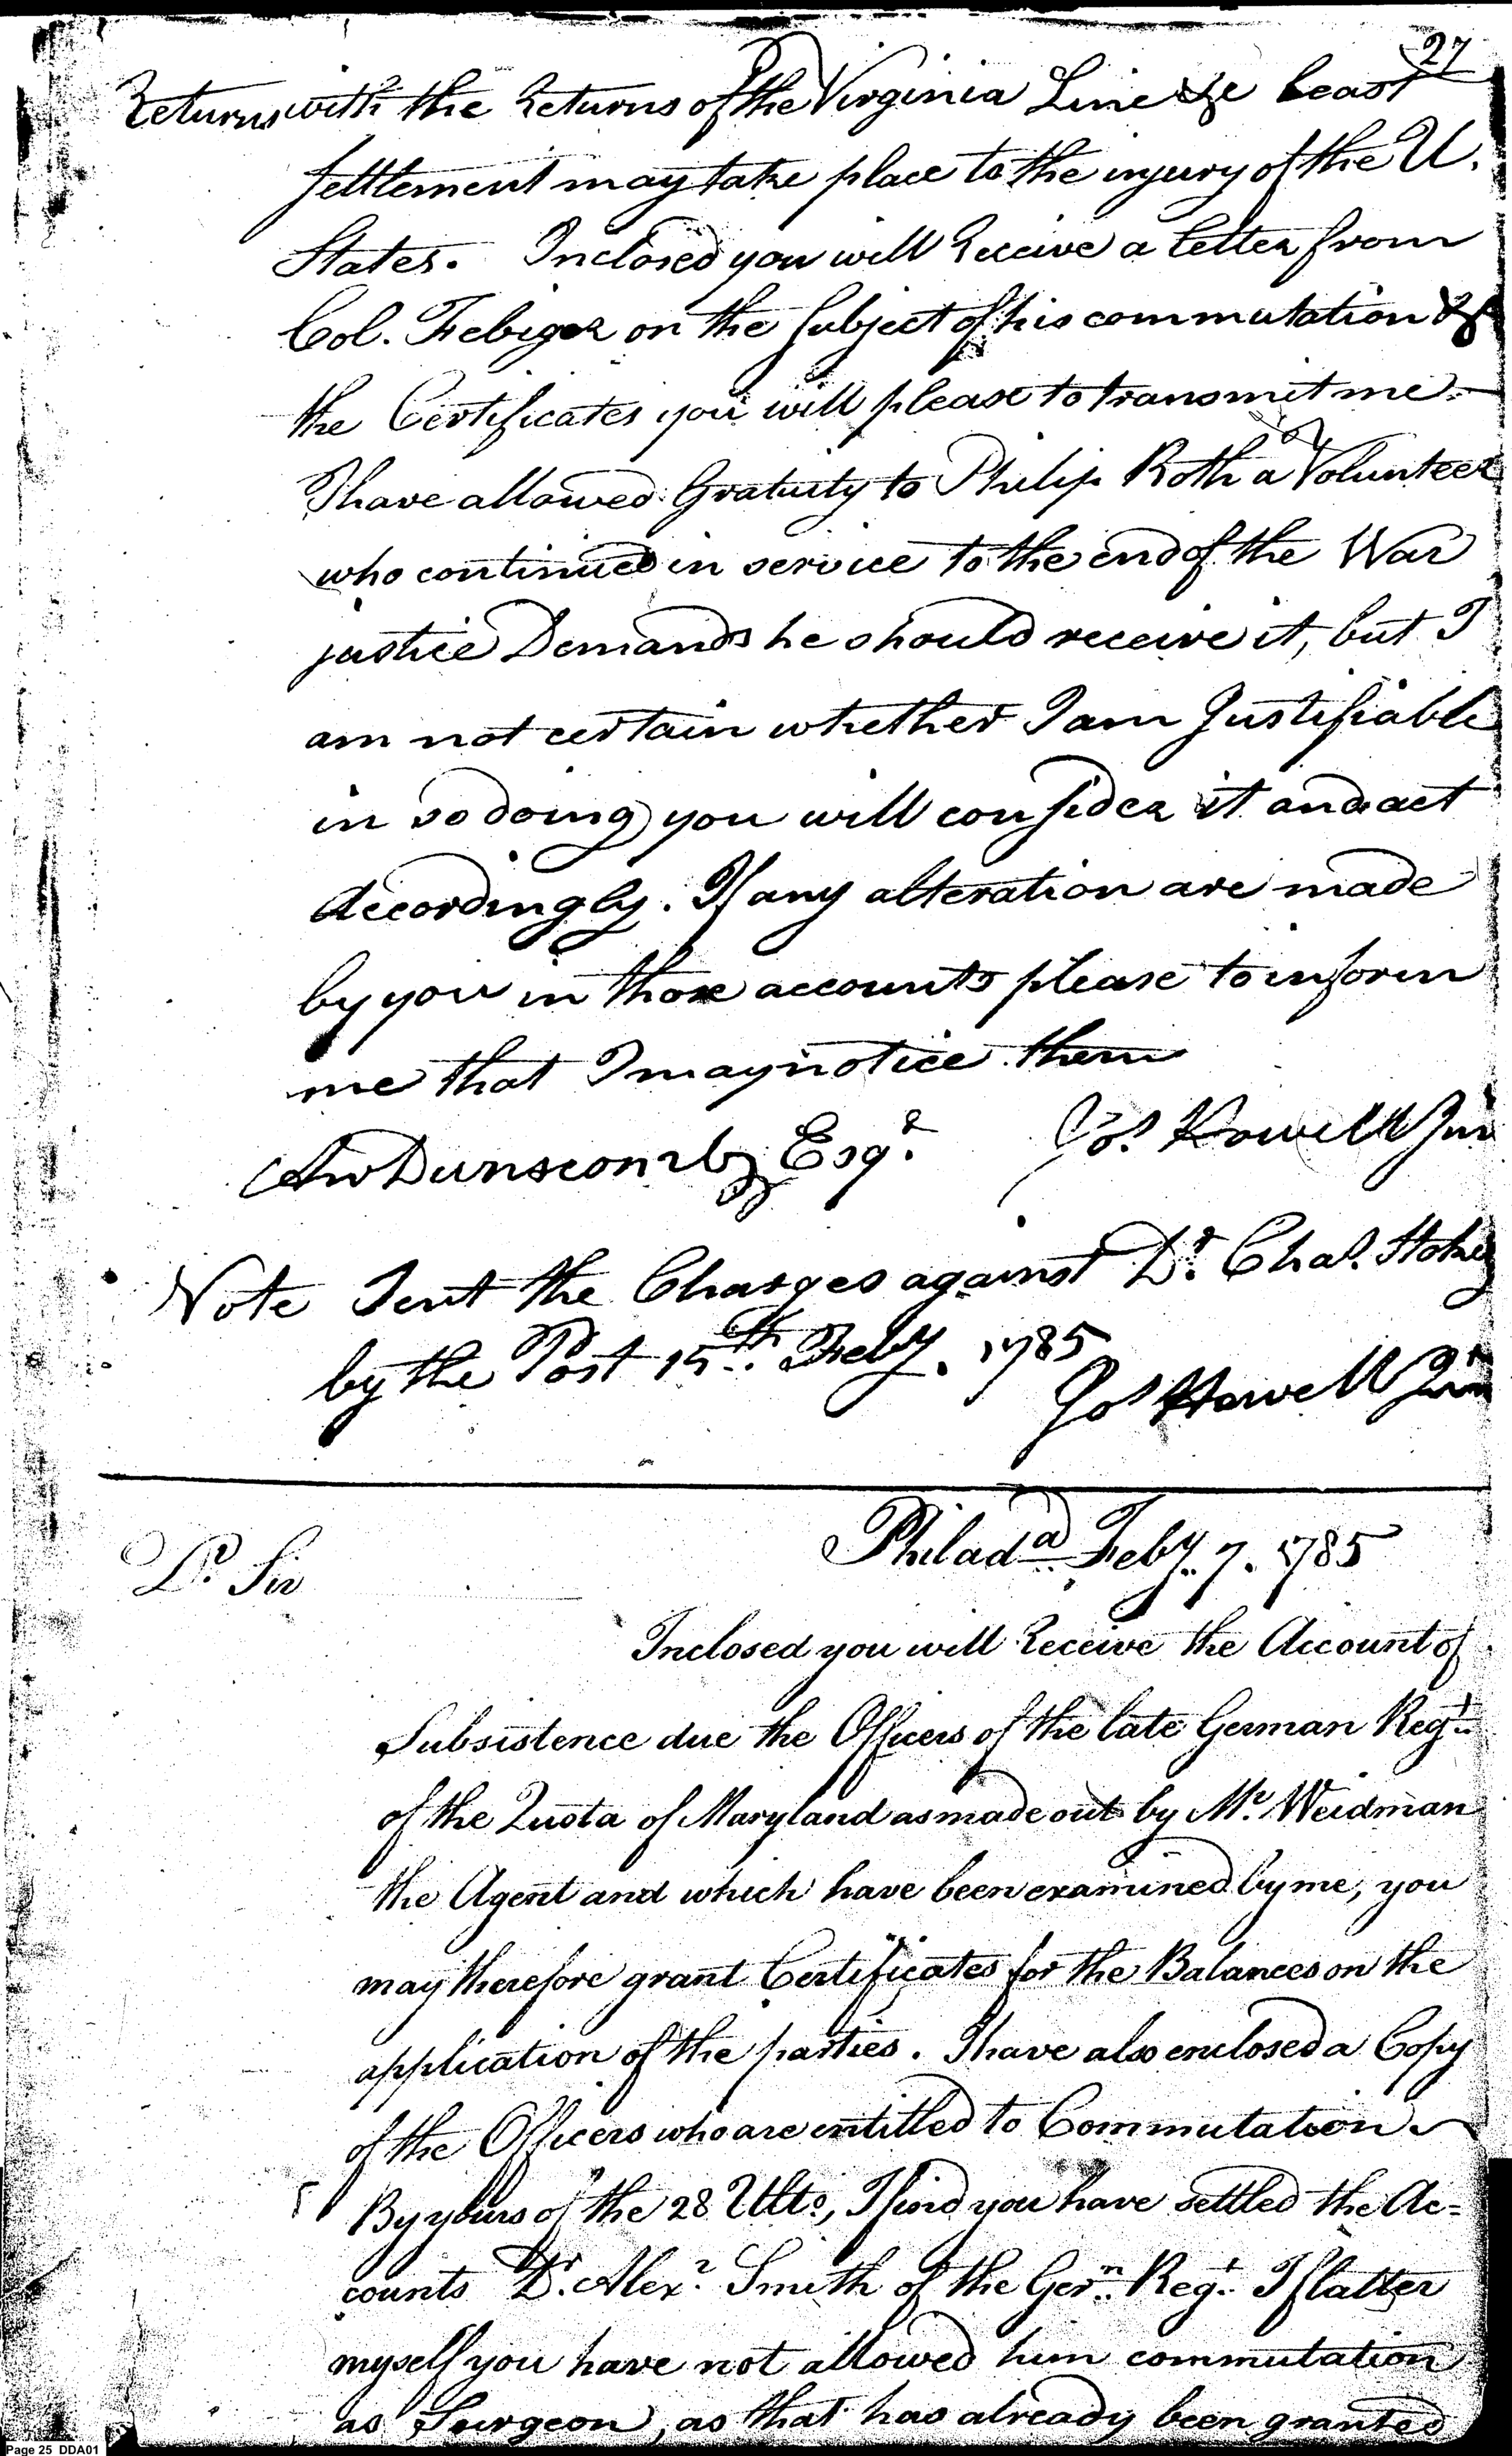 27
Returns with the Returns of the Virginia Line &c least
Settlement may take place to the injury of the U.
States. Inclosed you will Receive a letter from
Col. Febiger on the Subject of his commutation &c
the Certificates you will please to transmit me.
I have allowed Gratuity to Philip Roth a Volunteer
who continued in service to the end of the War
justice Demands he should receive it, but I
am not certain whether I am Justifiable
in so doing you will consider it and act
Accordingly. If any alteration are made
by you in those accounts please to inform
me that I may notice them
Anw Dunscomb Esqr. Jos. Howell Jun
Note Sent the Charges against Dr. Chas. Stokes
by the Post 15th. Feby. 1785
Jos Howell Jun
Philada. Feby. 7. 1785
Dr. Sir
Inclosed you will Receive the Account of
Subsistence due the Officers of the late German Regt.
of the Quota of Maryland as made out by Mr. Weidman
the Agent and which have been examined by me, you
may therefore grant Certificates for the Balances on the
application of the parties. I have also enclosed a Copy
of the Officers who are entitled to Commutation
By yours of the 28 Ulto., I find you have settled the Ac=
counts Dr. Alexr. Smith of the Gern. Regt. I flatter
myself you have not allowed him commutation
as Surgeon, as that has already been granted
Page 25 DDA01